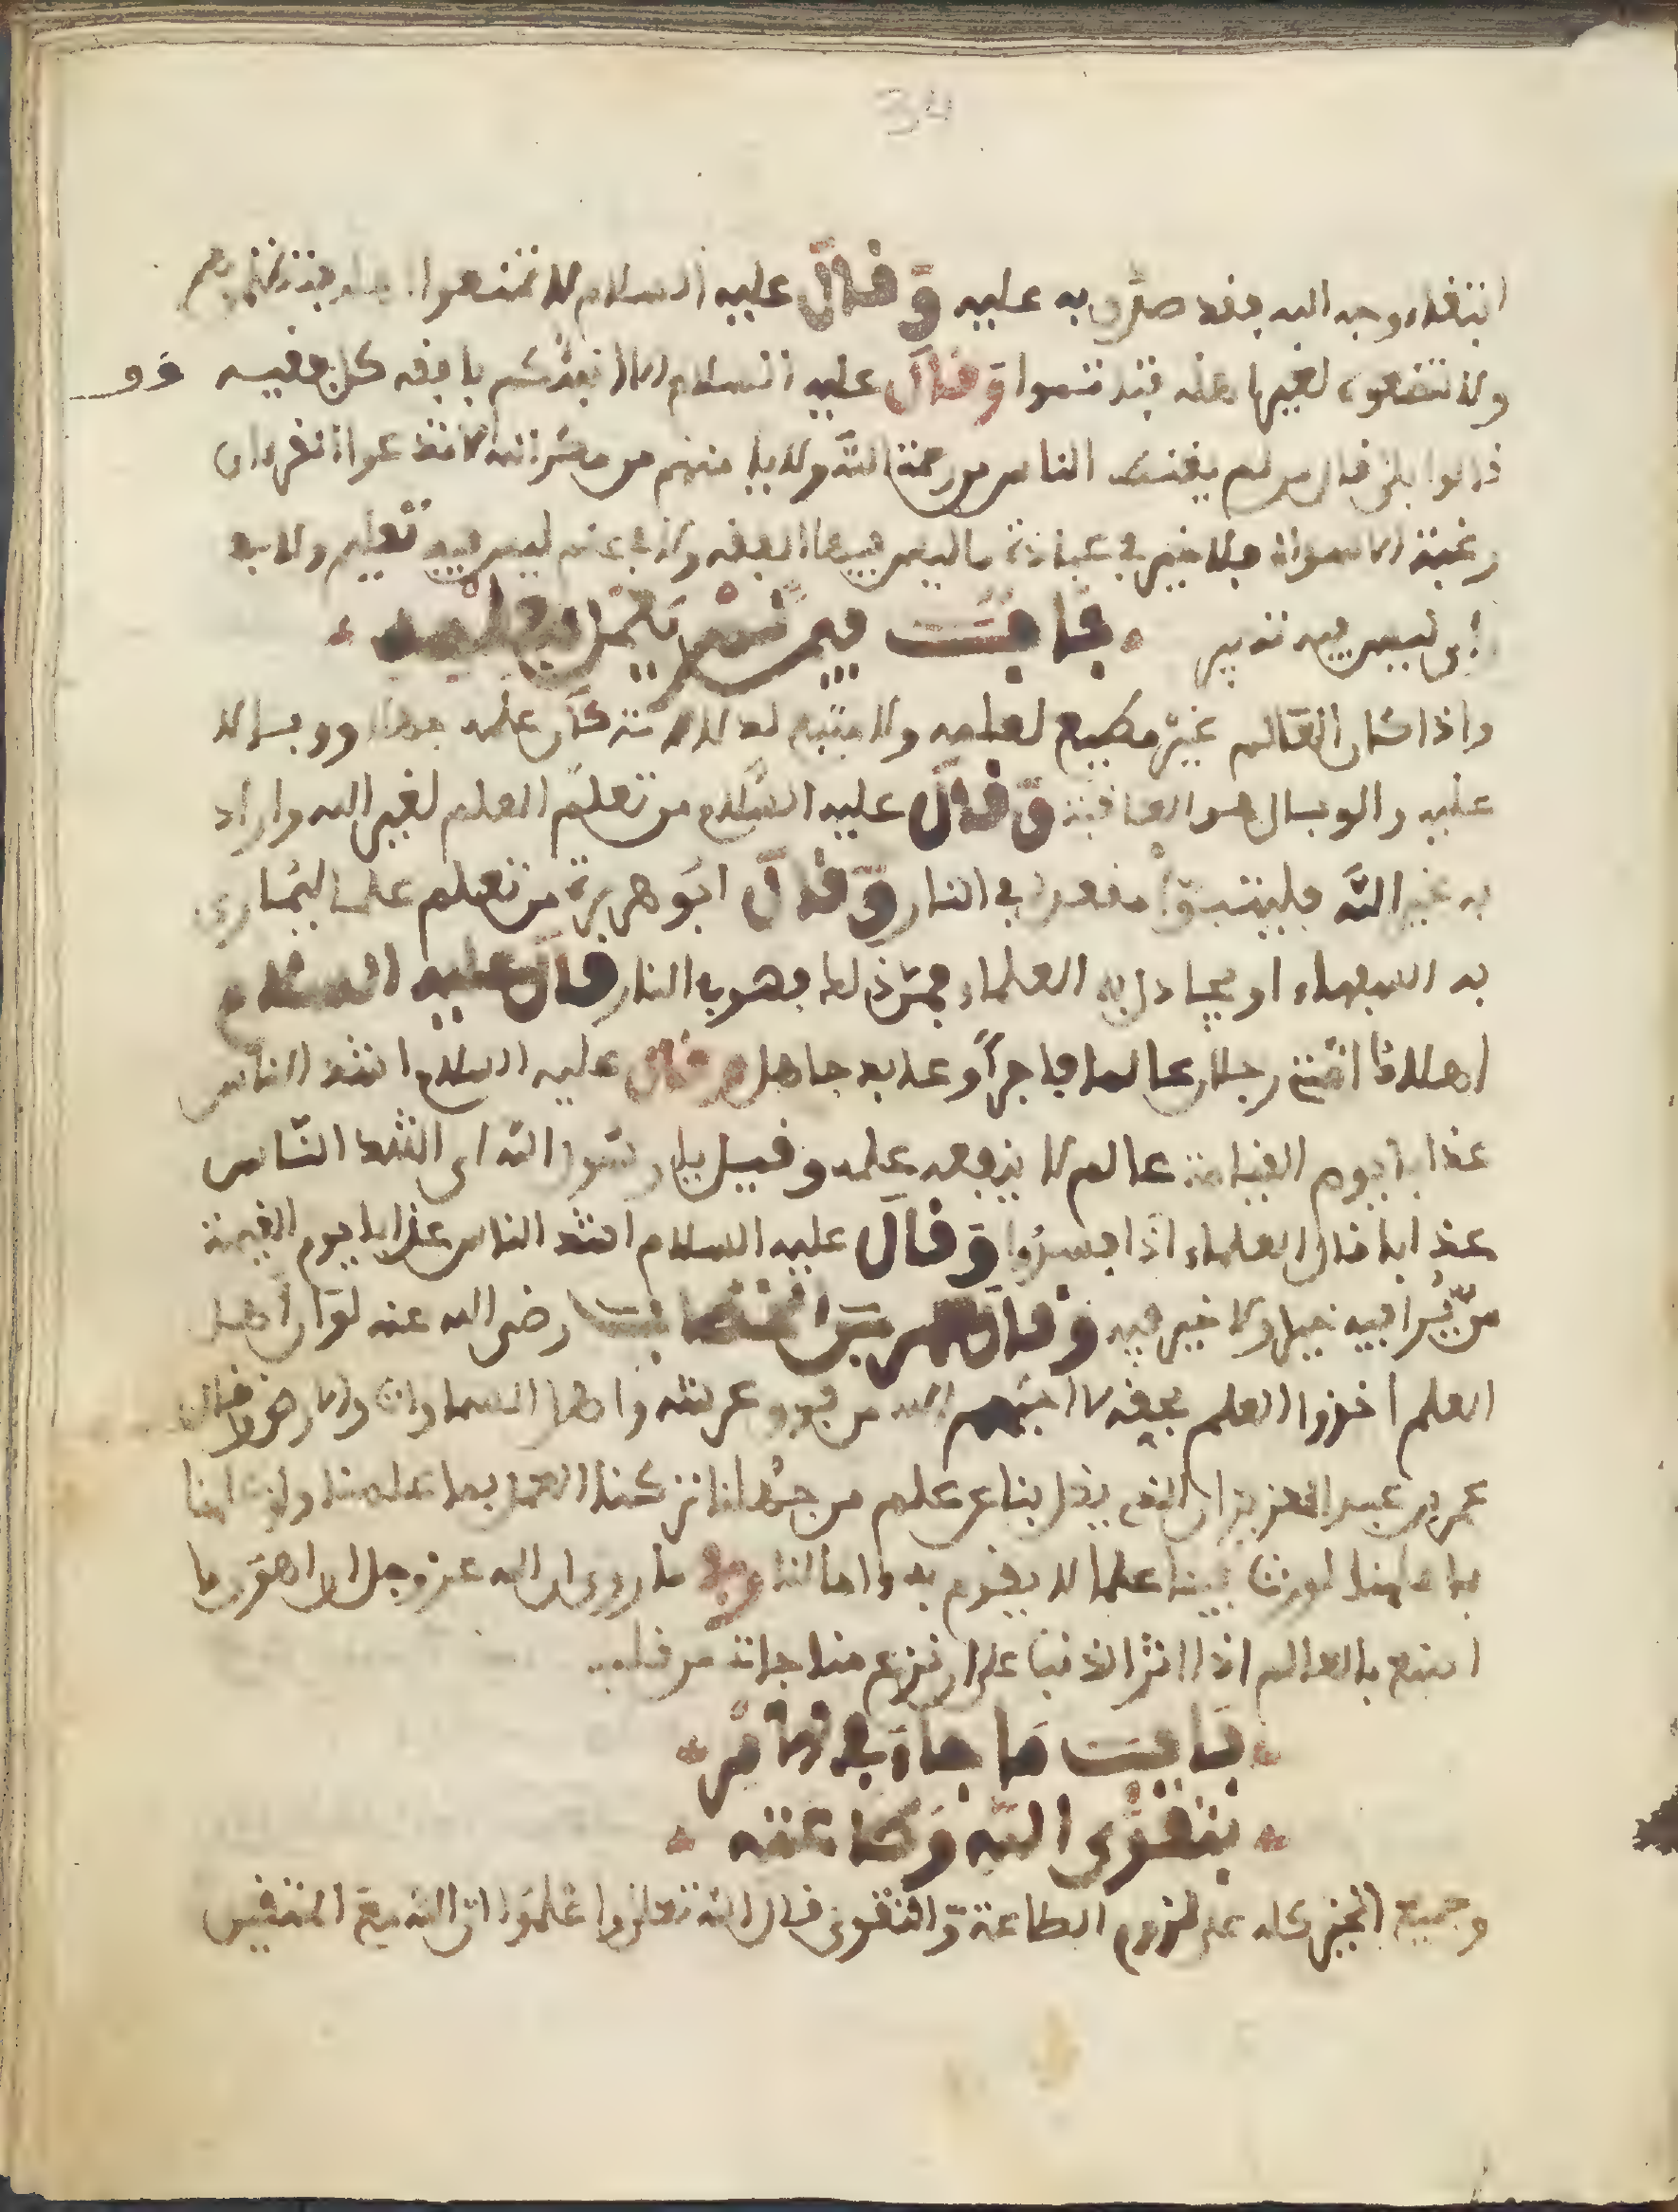 34
ابتغاء وجه الله فقد صدق به عليه وقال عليه السلام لا تمنعوا
ولا تضعوه لغيرها هله فتندموا وقال عليه السلام الا انبئكم بافقه كل فقيه
قالوا بلى قال من لم يقنط الناس من رحمة الله ولا يا منهم من مكر الله لا تدعوا القرءان
رغبة الى سواه فلا خير في عبادة ما ليس فيها تفقه ولا في علم ليس فيه تفهم ولا
ليس فيه تدبر باب فيمن لم يعمل بعلمه
واذا كان العالم غير مطيع لعلمه ولا متبع له لادته كان علمه وبالا
عليه والوبال هو العاقبة وقال عليه السلام من تعلم العلم لغير الله واراد
به غير الله فليتبوأ مقعده في النار وقال ابو هريرة من تعلم علما ليماري
به السفهاء او يجادل به العلماء فهو في النار قال عليه السلام
اهلك امتي رجلان عالم فاجر وعابد جاهل وقال عليه السلام اشد الناس
عذابا يوم القيامة عالم لا ينفعه علمه وقيل يا رسول الله اي اشد الناس
عذابا قال العلماء اذا فسدوا وقال عليه السلام اشد الناس عذابا يوم القيمة
من يرا فيه خير ولا خير فيه وقال عمر بن الخطاب رضي الله عنه لو ان اهل
العلم اخذوا العلم بحقه لاحبهم الله من فوق عرشه واهل السماوات والارض وقال
عمر بن عبد العزيز ان الذي يغل بنا عن علم من جهلنا تركنا العمل بما علمنا ولو عملنا
بما علمنا لورثنا علما لا يقوم به وامالنا وفي ما روي ان الله عز وجل ان اهون ما
اصنع بالعالم اذا اثر الدنيا على ان نزع مناجاته من قلبه
باب ما جاء في الامر
بتقوى الله وطاعته
وجميع الخير كله على لزوم الطاعة والتقوى قال الله تعلى واعلموا ان الله مع المتقين